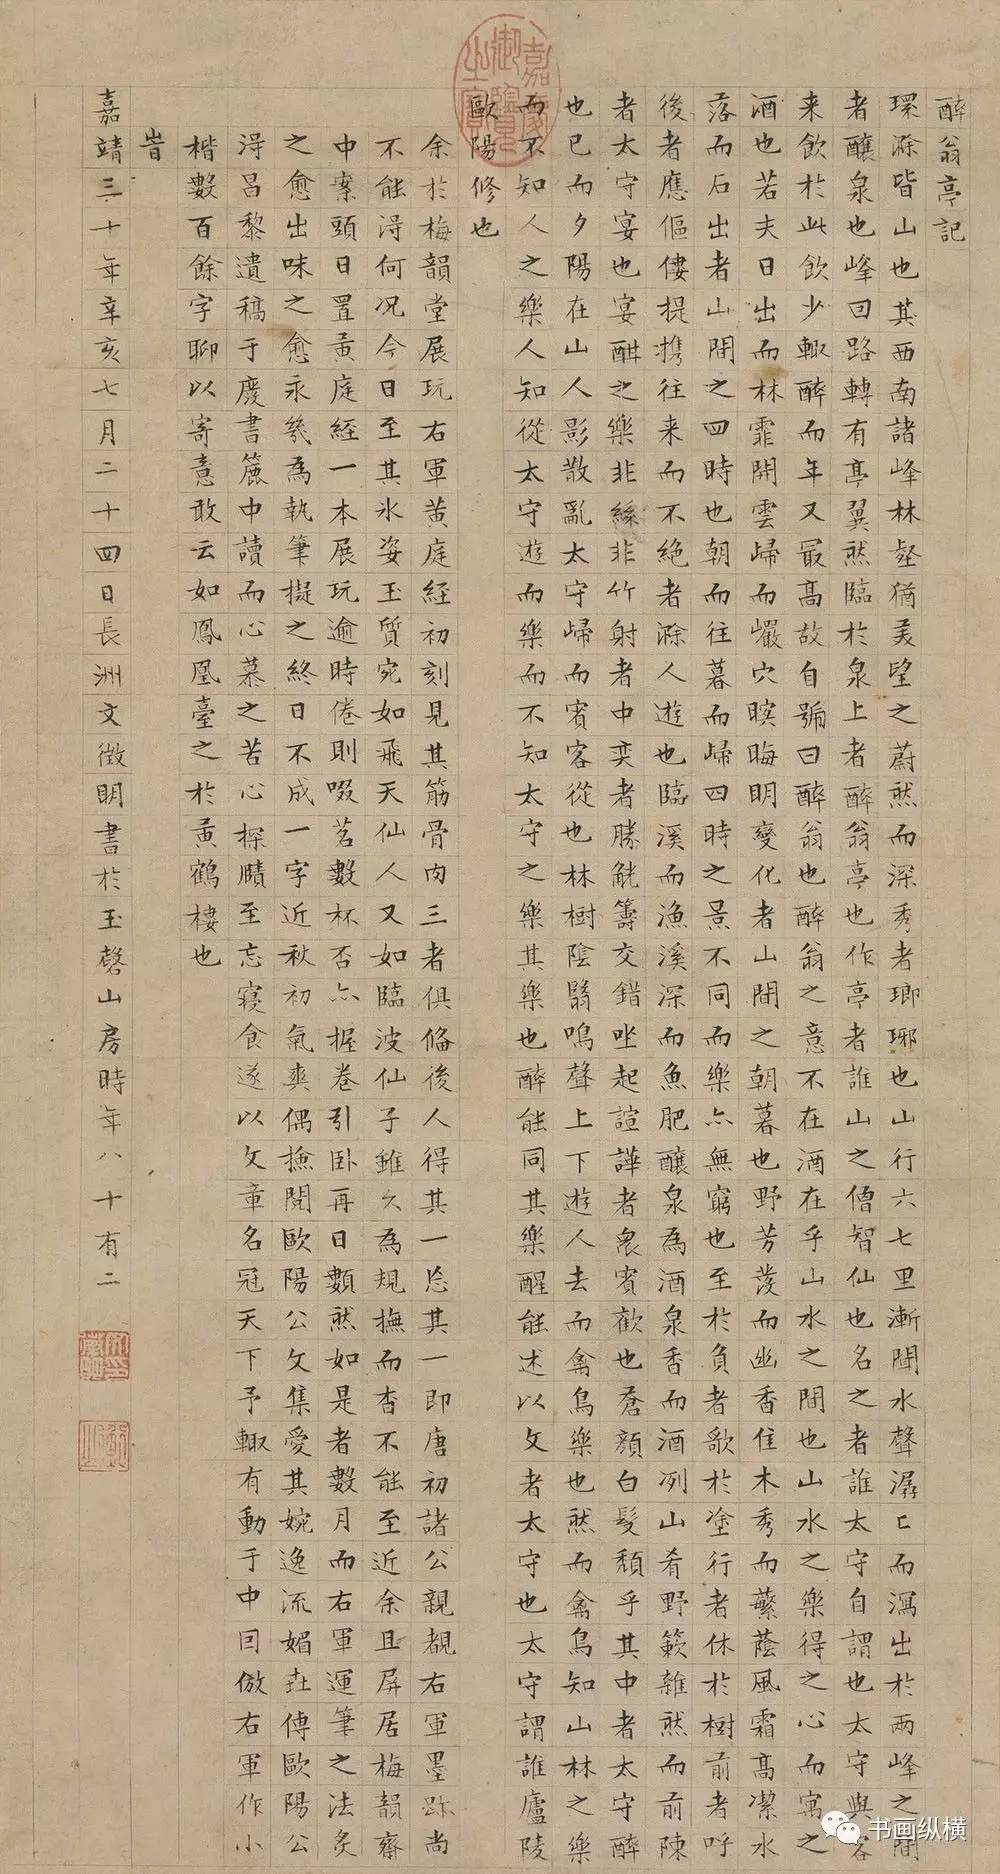 醉翁亭記
環滁皆山也其西南諸峰林壑猶羙望之蔚然而深秀者瑯琊也山行六七里漸聞水聲潺〻而瀉出於兩峰之間
者釀泉也峰回路轉有亭翼然臨於泉上者醉翁亭也作亭者誰山之僧智仙也名之者誰太守自謂也太守與客
来飲於此飲少輙醉而年又最髙故自號曰醉翁也醉翁之意不在酒在乎山水之間也山水之樂得之心而寓之
酒也若夫日出而林霏開雲歸而巖穴暝晦明變化者山間之朝暮也野芳發而幽香佳木秀而繁蔭風霜髙潔水
落而石出者山間之四時也朝而往暮而歸四時之景不同而樂亦無窮也至於負者歌於塗行者休於樹前者呼
後者應傴僂提携往来而不絶者滁人遊也臨溪而漁溪深而魚肥釀泉為酒泉香而酒冽山肴野蔌雜然而前陳
者太守宴也宴酣之樂非絲非竹射者中奕者勝觥籌交錯坐起諠譁者衆賓歡也蒼顔白髮頽乎其中者太守醉
也已而夕陽在山人影散亂太守歸而賓客從也林樹陰翳鳴聲上下遊人去而禽鳥樂也然而禽鳥知山林之樂
而不知人之樂人知從太守遊而樂而不知太守之樂其樂也醉能同其樂醒能述以文者太守也太守謂誰廬陵
歐陽修也
余於梅韻堂展玩右軍黄庭経初刻見其筋骨肉三者俱備後人得其一忘其一即唐初諸公親覩右軍墨跡尚
不能淂何况今日至其氷姿玉質宛如飛天仙人又如臨波仙子雖久為規撫而杳不能至近余且屏居梅韻齋
中案頭日置黄庭経一本展玩逾時倦則啜茗數杯否亦握卷引卧再日數然如是者數月而右軍運筆之法炙
之愈出味之愈永兾為執筆擬之終日不成一字近秋初氣爽偶撿閱歐陽公文集愛其婉逸流媚其傳歐陽公
淂昌黎遺稿于廢書簏中讀而心慕之苦心探賾至忘寢食遂以文章名冠天下予輙有動于中囙倣右軍作小
楷數百餘字聊以寄意敢云如鳳凰臺之於黄鶴樓也
旹
嘉靖三十年辛亥七月二十四日長洲文徴明書於玉磬山房時年八十有二
嘉慶御覽之寶
文徵明印
书画纵横